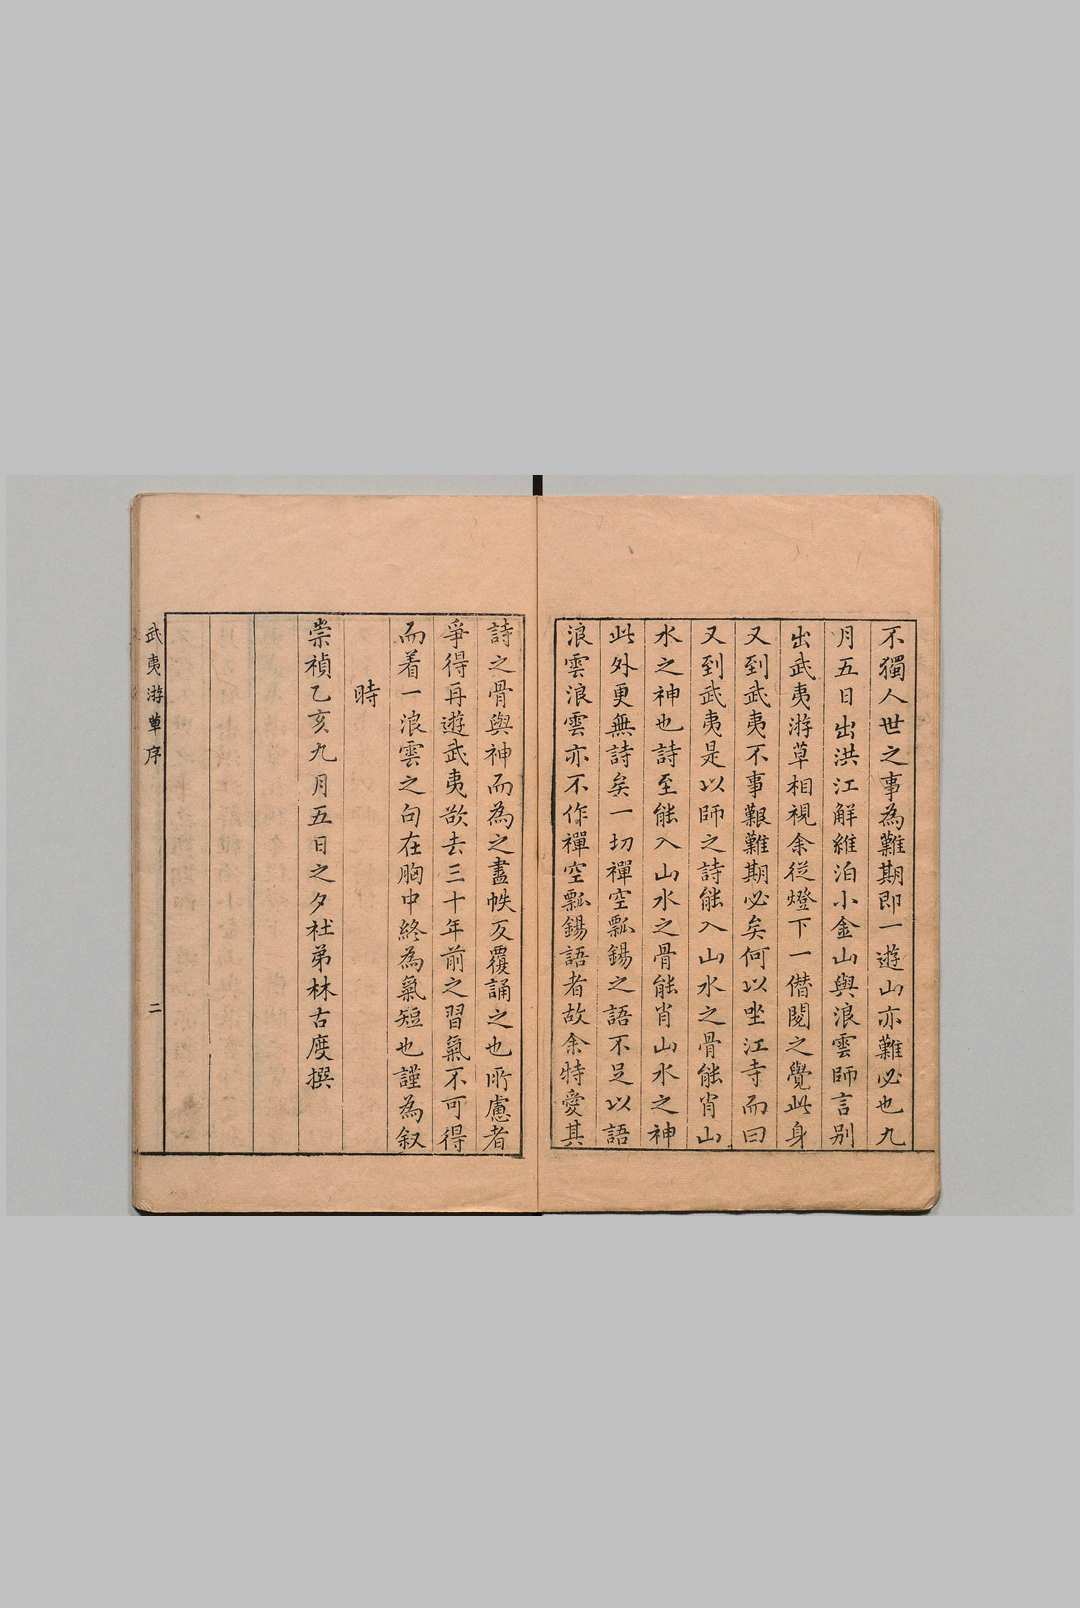 不獨人世之事為難期即一遊山亦難必也九
月五日出洪江解維泊小金山與浪雲師言別
出武夷游草相視余從燈下一僭閱之覺此身
又到武夷不事艱難期必矣何以坐江寺而曰
又到武夷是以師之詩能入山水之骨能肖山
水之神也詩至能入山水之骨能肖山水之神
此外更無詩矣一切禪空瓢錫之語不足以語
浪雲浪雲亦不作禪空瓢錫語者故余特愛其
詩之骨與神而為之盡帙反覆誦之也所慮者
爭得再遊武夷欲去三十年前之習氣不可得
而着一浪雲之句在胸中終為氣短也謹為叙
時
崇禎乙亥九月五日之夕社弟林古度撰
武夷游草序
二